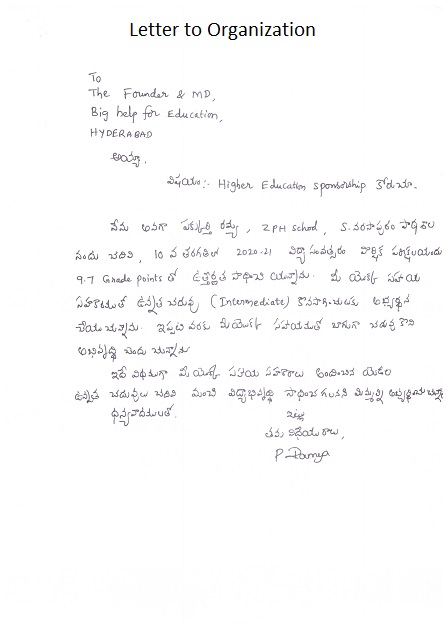 Letter to Organization
To
The Founder & MD,
Big help for Education,
HYDERABAD
అయ్యా.
విషయం:- Higher Education sponsorship కోరుట.
నేను అనగా రమ్య, ZPH school, S. నరసాపురం పాఠశాల
నందు చదివి, 10 వ తరగతిలో 2020-21 విద్యా సంవత్సరం వార్షిక పరీక్షలయందు
9.7 Grade points తో ఉత్తీర్ణత సాధించి యున్నాను. మీ యొక్క సహాయ
సహకారముతో ఉన్నత చదువు (Intermediate) కొనసాగించుటకు అభ్యర్థన
చేయుచున్నాను. ఇప్పటి వరకు మీ యొక్క సహాయముతో బాగుగా చదువుకొని
అభివృద్ధి చెందుచున్నాను
ఇదే విధముగా మీ యొక్క సహాయ సహకారాలు అందించిన యెడల
ఉన్నత చదువులు చదివి మంచి విద్యాభివృద్ధి సాధించగలనని మిమ్మల్ని
ధన్యవాదములతో.
ఇట్లు
తమ విధేయురాలు,
P. Ramya